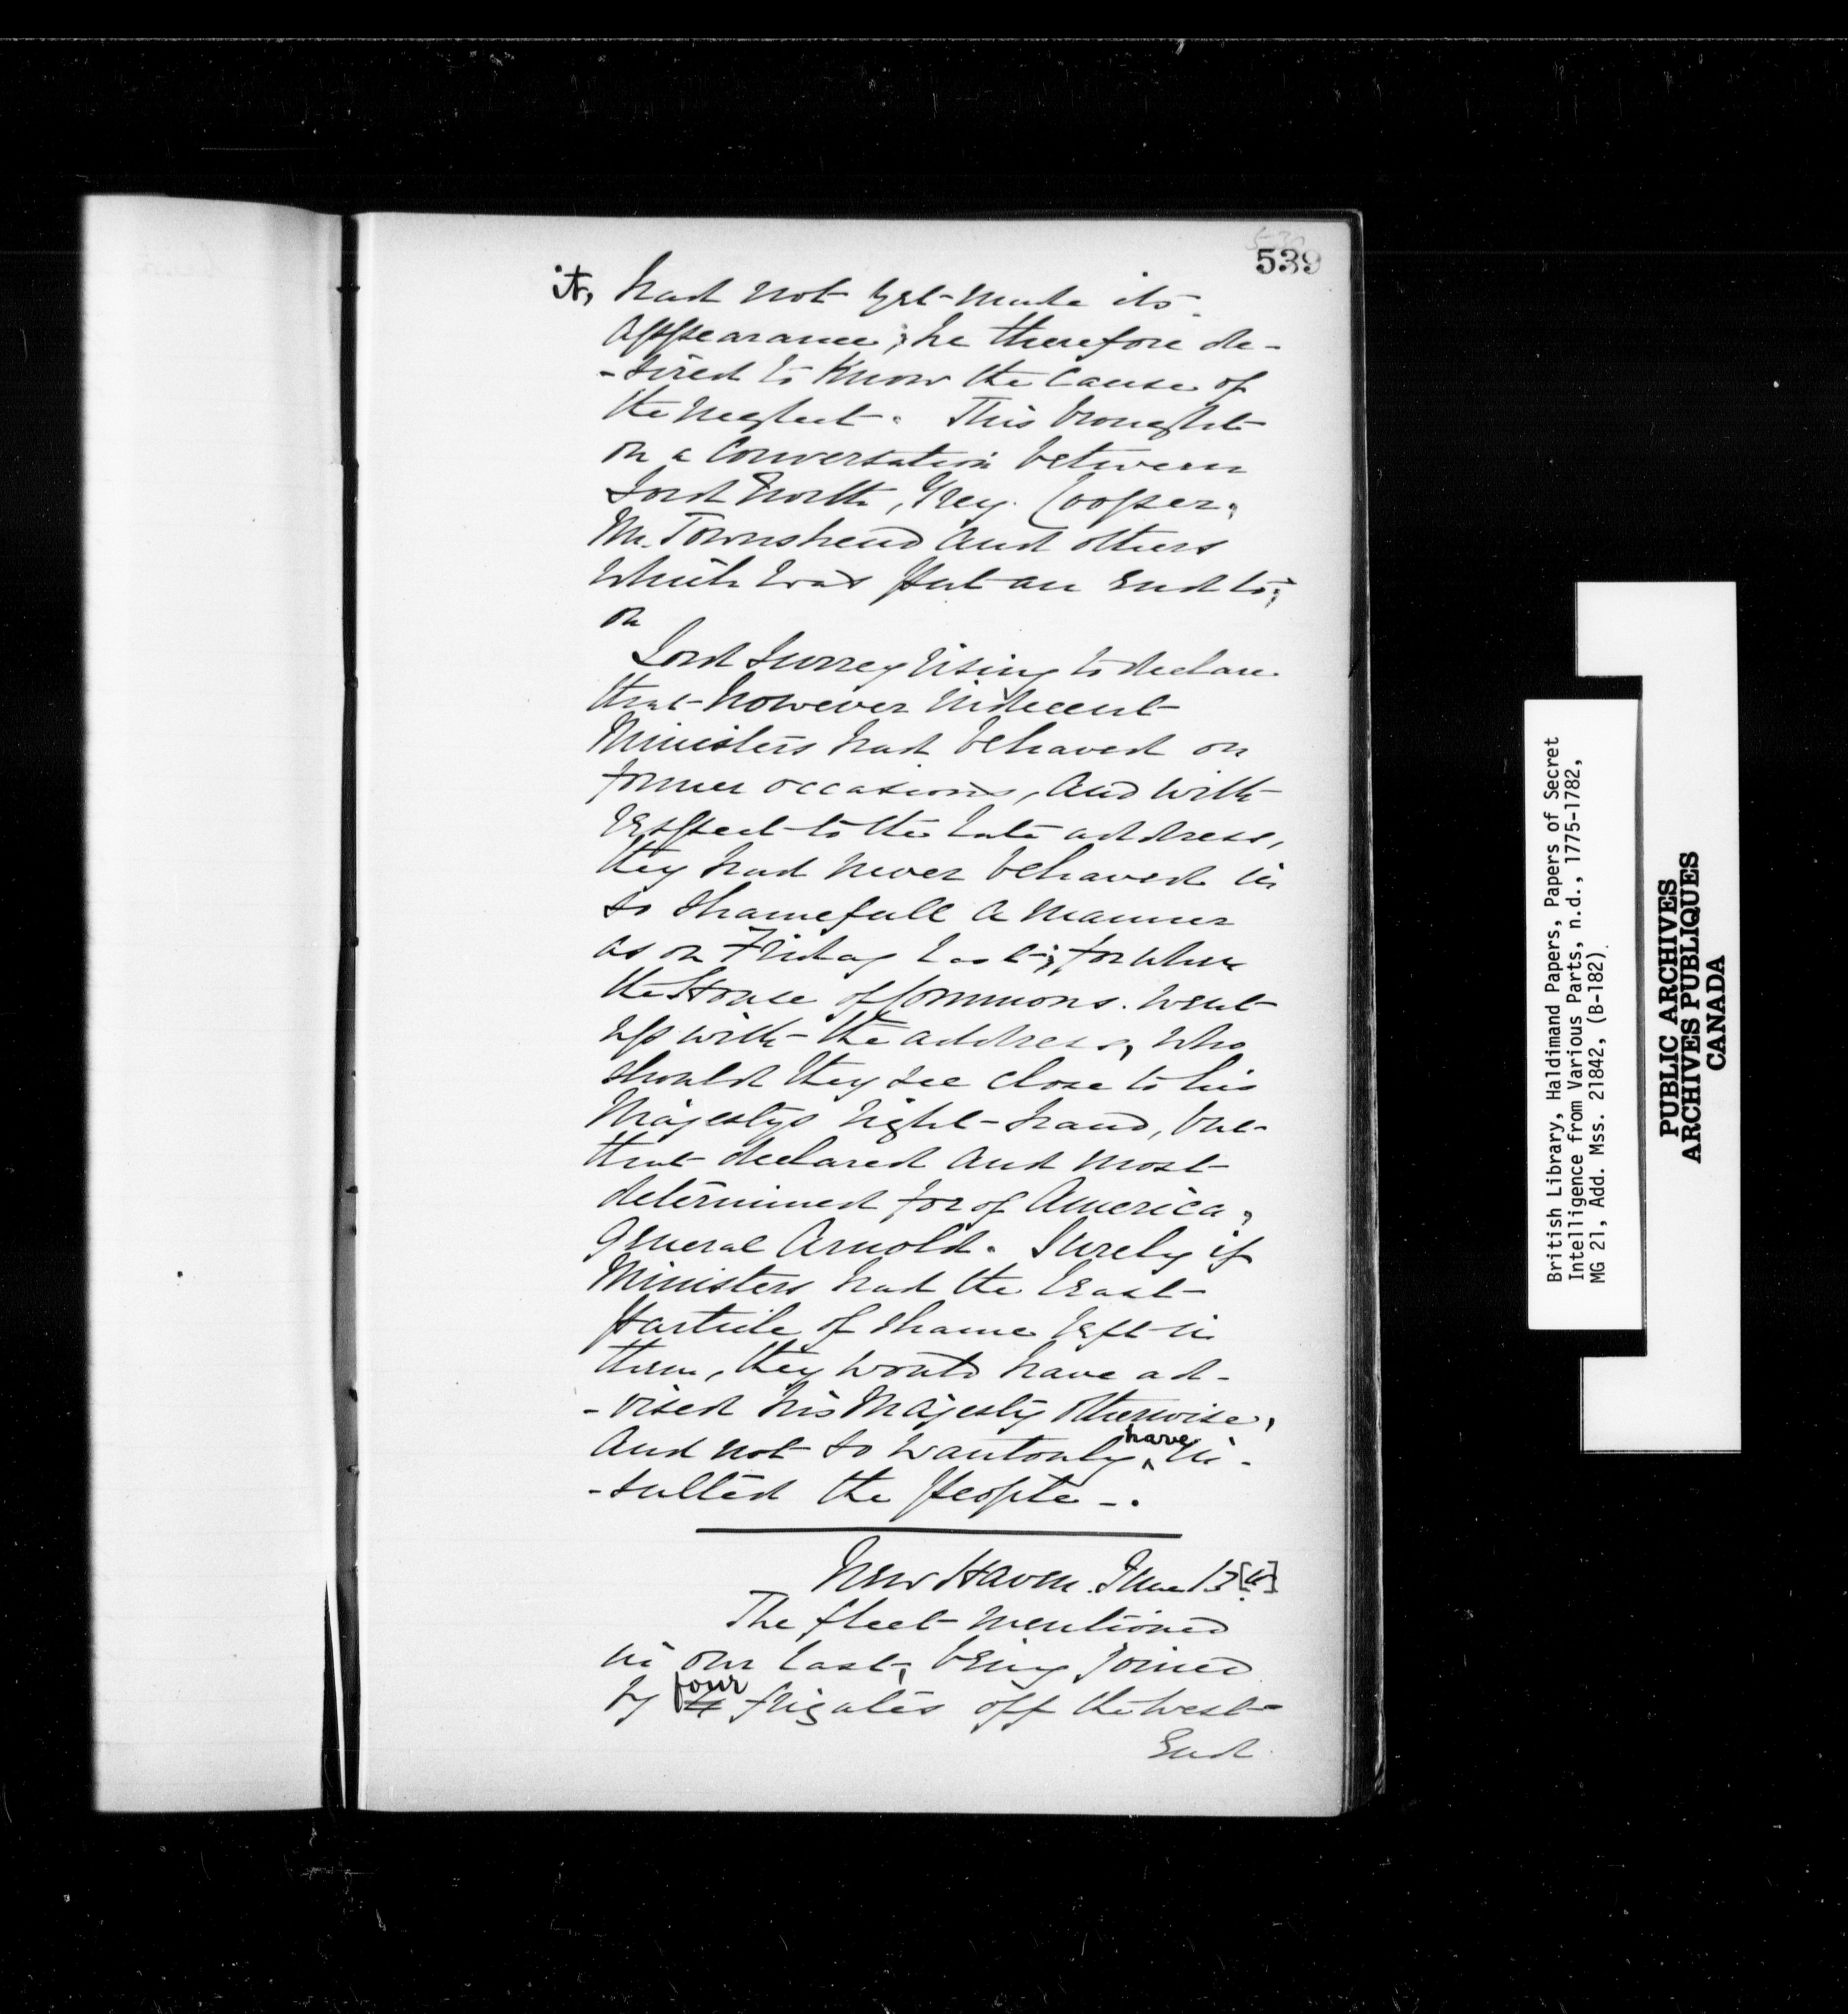 539
it, had not yet made its
appearance; he therefore de-
-sired to Know the Cause of
the neglect. This brought
on a Conversation between
Lord North, Grey. Cooper,
Mr. Townshend and others
which was put an End to;
on
Lord Surrey rising to declare
that however indecent
Ministers had behaved on
former occasions, and with
respect to the late address,
they had never behaved in
so shamefull a manner
as on Friday last; for when
the House of Commons. went
up with the address, who
should they see close to his
Majestys right-hand, but
that declared and most
determined foe of America,
General Arnold. Surely if
Ministers had the least
particle of shame left in
them, they would have ad-
-vised his Majesty otherwise,
and not so wantonly have in-
-sulted the People -.
New Haven. June 13 [4]
The fleet mentioned
in our last, being joined
by four frigates off the West
End
British Library, Haldimand Papers, Papers of Secret
Intelligence from Various Parts, n.d., 1775-1782,
MG 21, Add. Mss. 21842, (B-182).
PUBLIC ARCHIVES
ARCHIVES PUBLIQUES
CANADA